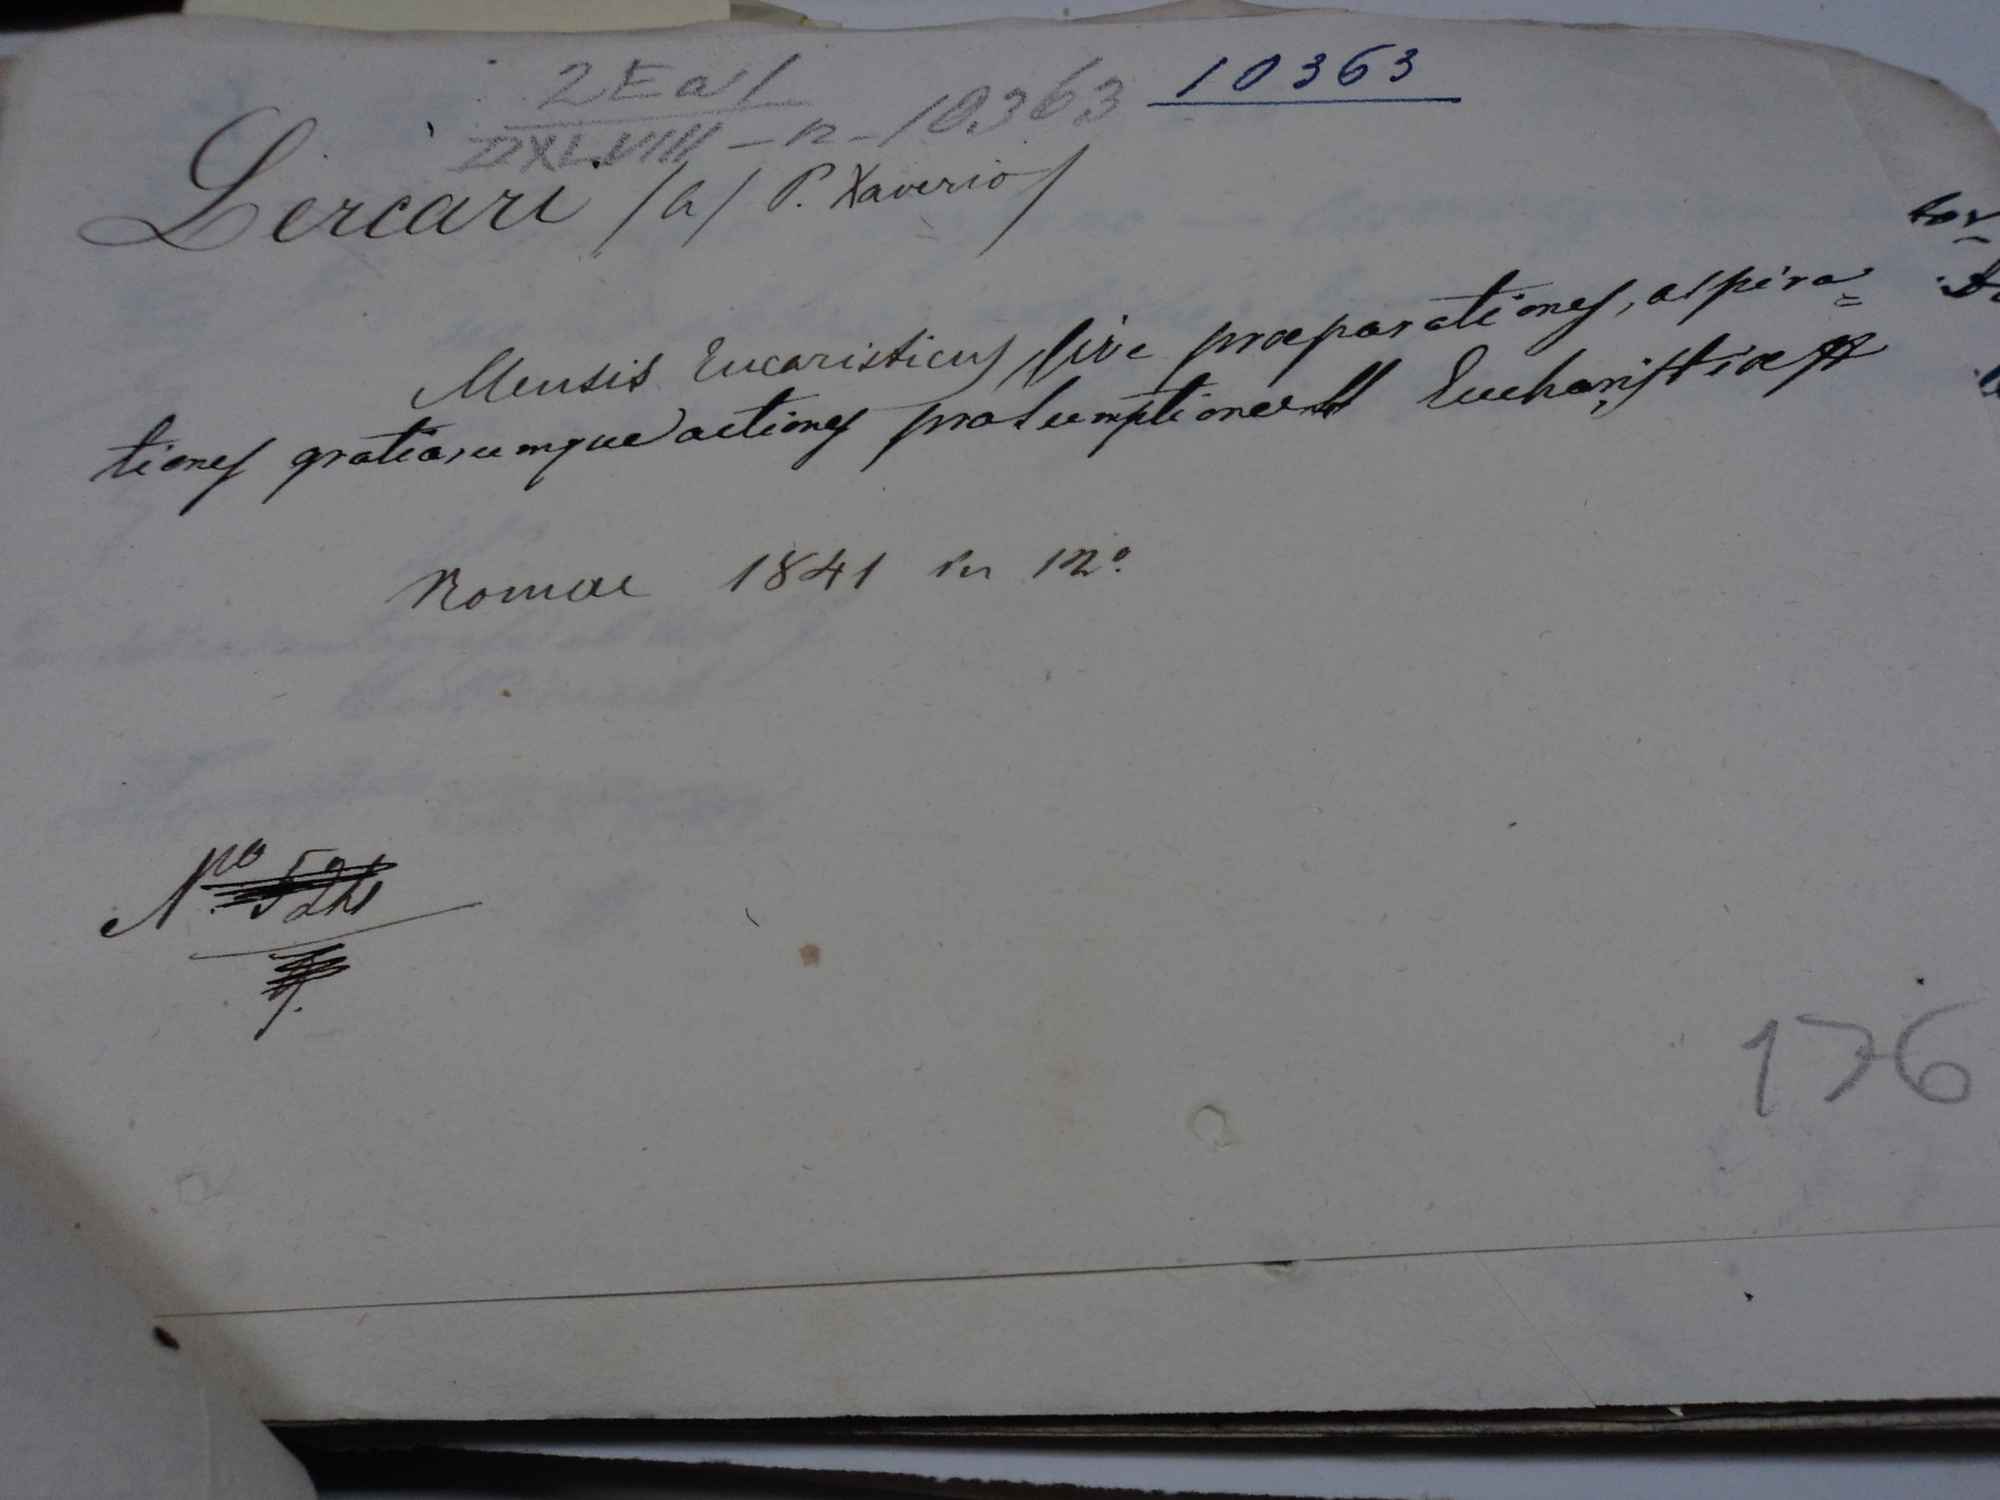 10363
2 Ea 1
DXLVIII - n - 10363
Lercari /a/ P. Xaverio/
Mensis Eucaristicus, sive præparationes, aspira=
tiones gratiarumque actiones pro sumptione Eucharistiæ
Romae 1841 in 12º
Nº
176